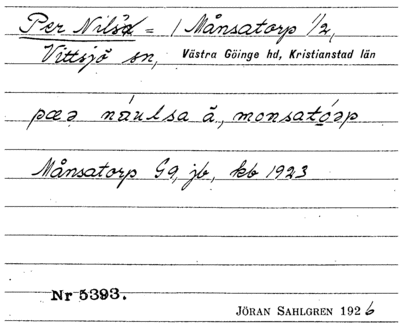 Per Nils's = / Månsatorp 1/2,
Vittsjö sn, Västra Göinge hd, Kristianstad län
pæə nàulsa å, monsatóəp
Månsatorp G9, jb, kb 1923
Nr 5393.
JÖRAN SAHLGREN 1926